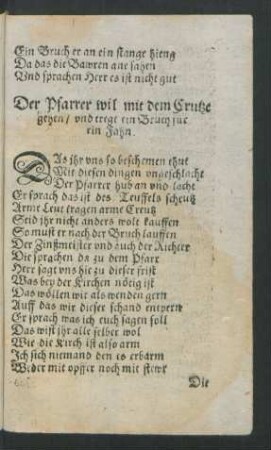 Ein Bruch er an ein stange hieng
Da das die Bawren ane sahen
Vnd sprachen Herr es ist nicht gut
Der Pfarrer wil mit dem Crutze
gehen / vnd tregt ein Bruch fur
ein Fahn.
DAs ihr vns so beschemen thut
Mit diesen dingen vngeschlacht
Der Pfarrer hub an vnd lacht
Er sprach das ist des Teuffels scheutz
Arme Leut tragen arme Creutz
Seid ihr nicht anders wolt kauffen
So must er nach der Bruch lauffen
Der Zinßmeister vnd auch der Richter
Die sprachen da zu dem Pfarr
Herr sagt vns hie zu dieser frist
Was bey der Kirchen nötig ist
Das wöllen wir als wenden gern
Auff das wir dieser schand entpern
Er sprach was ich euch sagen soll
Das wist jhr alle selber wol
Wie die Kirch ist also arm
Ich sich niemand den es erbarm
Weder mit opffer noch mit stewr
Die